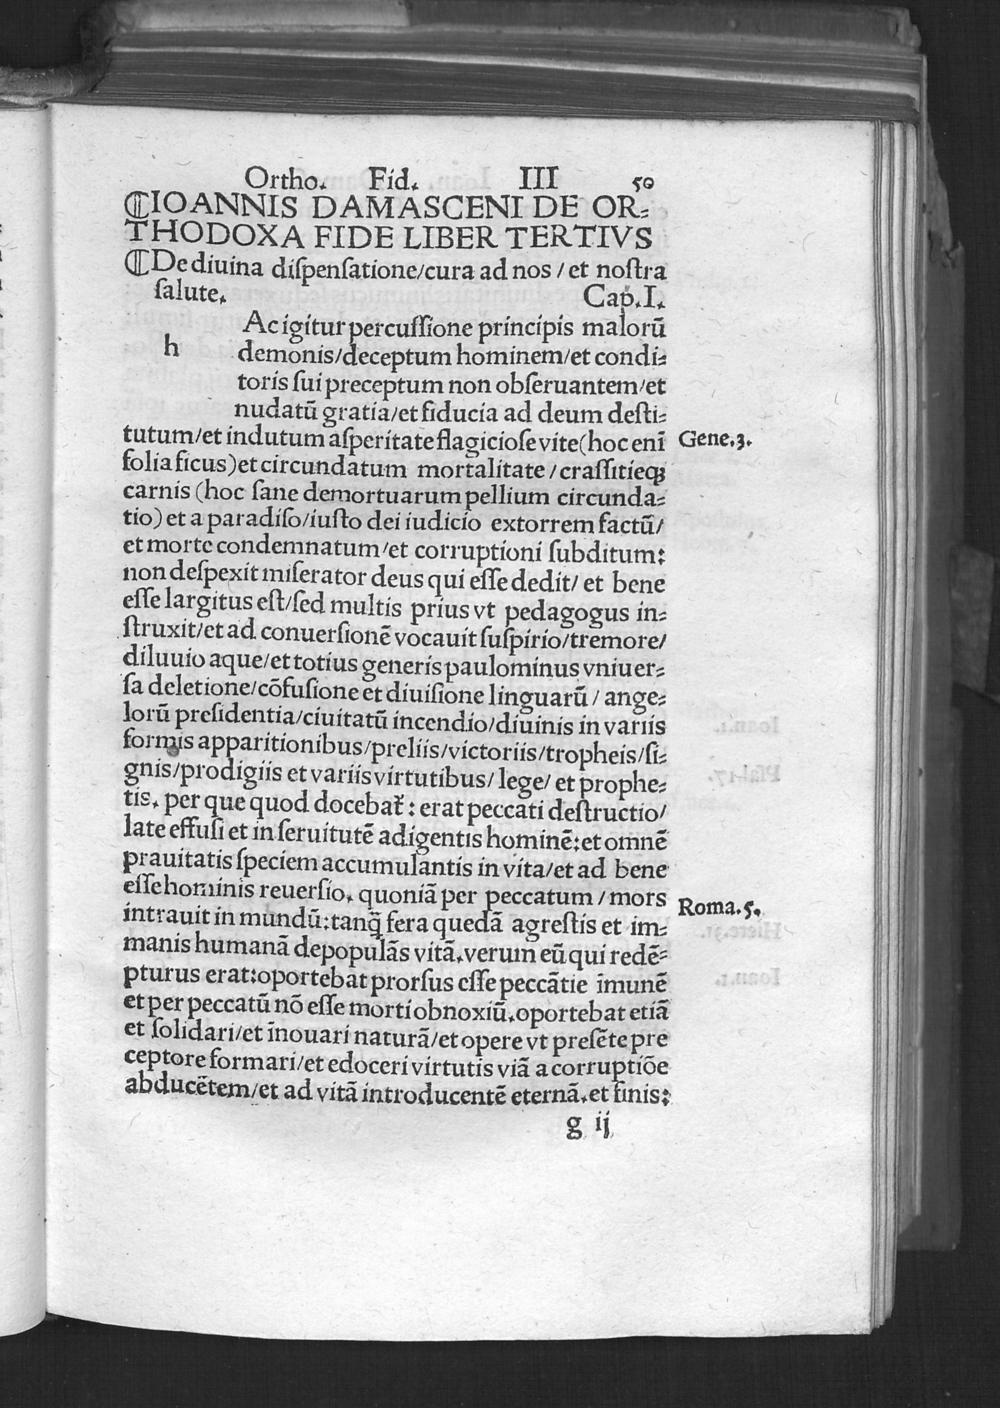 Ortho. Fid. III 50
⁋IOANNIS DAMASCENI DE OR⸗
THODOXA FIDE LIBER TERTIVS
⁋De diuina diſpenſatione/cura ad nos / et noſtra
ſalute. Cap.I.
Ac igitur percuſſione principis malorū
h demonis/deceptum hominem/et condi⸗
toris ſui preceptum non obſeruantem/et
nudatū gratia/et fiducia ad deum deſti⸗
tutum/et indutum aſperitate flagicioſe vite(hoc enī Gene.3.
folia ficus)et circundatum mortalitate / craſſitieqꝫ
carnis (hoc ſane demortuarum pellium circunda⸗
tio) et a paradiſo/iuſto dei iudicio extorrem factū/
et morte condemnatum/et corruptioni ſubditum:
non deſpexit miſerator deus qui eſſe dedit/ et bene
eſſe largitus eſt/ſed multis prius vt pedagogus in⸗
ſtruxit/et ad conuerſionē vocauit ſuſpirio/tremore/
diluuio aque/et totius generis paulominus vniuer⸗
ſa deletione/cōfuſione et diuiſione linguarū / ange⸗
lorū preſidentia/ciuitatū incendio/diuinis in variis
formis apparitionibus/preliis/victoriis/tropheis/ſi⸗
gnis/prodigiis et variis virtutibus/ lege/ et prophe⸗
tis. per que quod docebat᷑ : erat peccati deſtructio/
late effuſi et in ſeruitutē adigentis hominē:et omnē
prauitatis ſpeciem accumulantis in vita/et ad bene
eſſe hominis reuerſio. quoniā per peccatum / mors Roma.5.
intrauit in mundū:tanq̄ fera quedā agreſtis et im⸗
manis humanā depopulās vitā.verum eū qui redē⸗
pturus erat:oportebat prorſus eſſe peccātie īmunē
et per peccatū nō eſſe morti obnoxiū.oportebat etiā
et ſolidari/et īnouari naturā/et opere vt preſēte pre
ceptore formari/et edoceri virtutis viā a corruptiōe
abducētem/et ad vitā introducentē eternā.et finis:
g ij